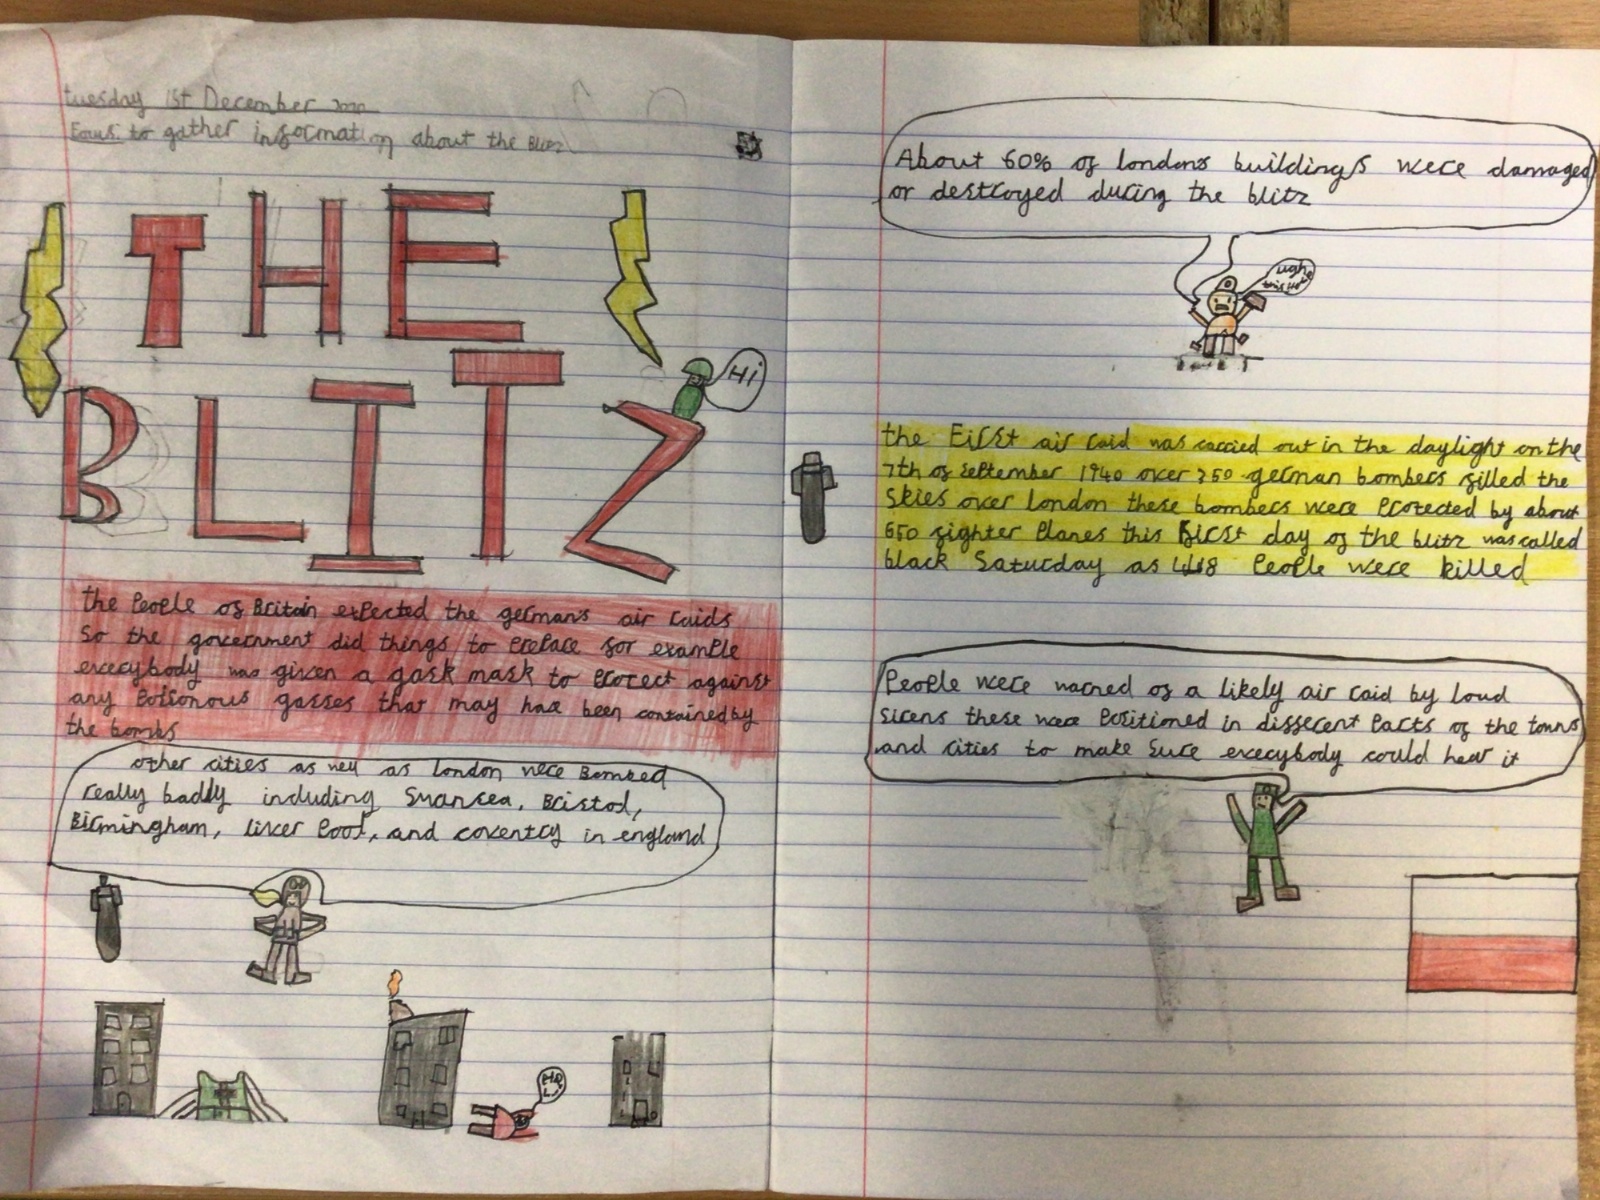 tuesday 1st December 2020
Focus: to gather information about the Blitz
THE
BLITZ
Hi
the People of Britain expected the german's air raids
So the government did things to prepare for example
everybody was given a gask mask to protect against
any Poisonous gasses that may have been contained by
the bombs
other cities as well as london were Bombed
really badly including Swansea, Bristol,
Birmingham, liver Pool, and coventry in england
HEL
About 60% of londons buildings were damaged
or destroyed during the blitz
ugh
this
the First air raid was carried out in the daylight on the
7th of September 1940 over 350 german bombers filled the
skies over London these bombers were Protected by about
650 fighter Planes this first day of the blitz was called
black Saturday as 448 People were killed
People were warned of a likely air raid by loud
sirens these were Positioned in different Parts of the towns
and cities to make sure everybody could hear it